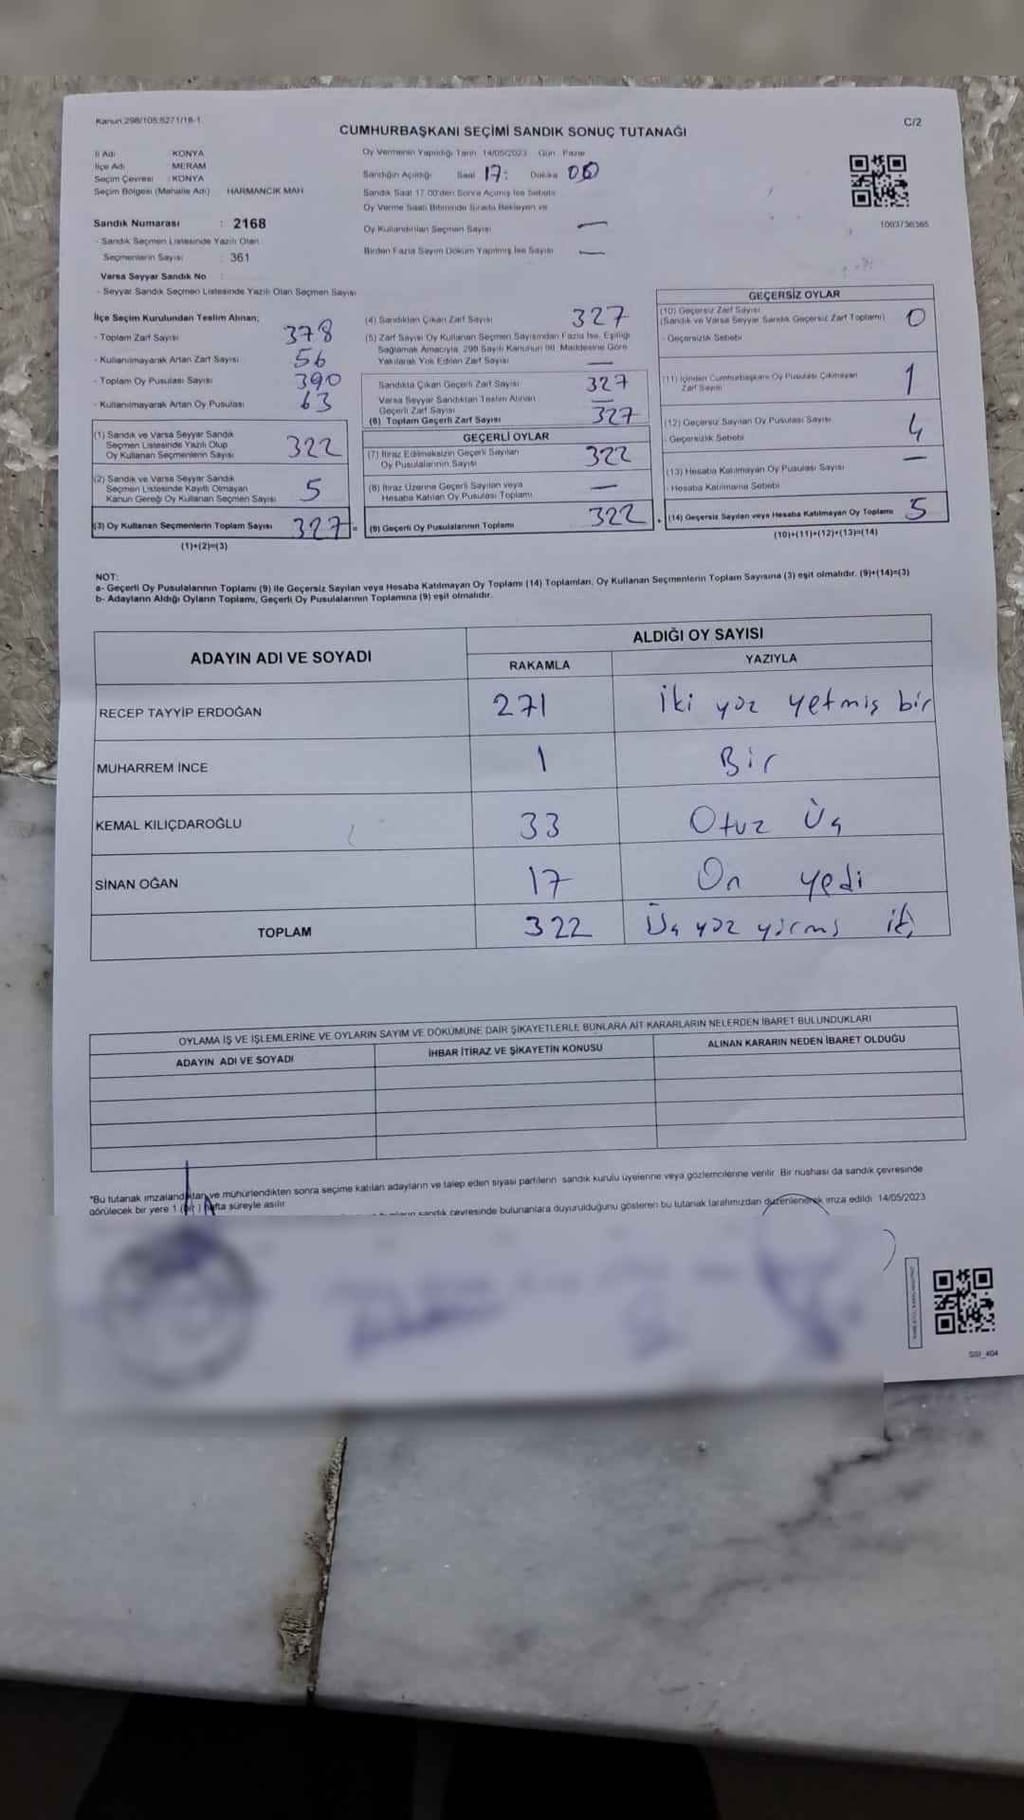 Kanun 298/105:6271/18-1
C/2
CUMHURBAŞKANI SEÇİMİ SANDIK SONUÇ TUTANAĞI
İl Adı KONYA
İlçe Adı MERAM
Seçim Çevresi : KONYA
Seçim Bölgesi (Mahalle Adı) HARMANCIK MAH
Sandık Numarası : 2168
- Sandık Seçmen Listesinde Yazılı Olan
Seçmenlerin Sayısı : 361
Varsa Seyyar Sandık No
- Seyyar Sandık Seçmen Listesinde Yazılı Olan Seçmen Sayısı
Oy Vermenin Yapıldığı Tarih 14/05/2023 Gün Pazar
Sandığın Açıldığı Saat 17: Dakika 00
Sandık Saat 17.00'den Sonra Açılmış İse Sebebi
Oy Verme Saati Bitiminde Sırada Bekleyen ve
Oy Kullandırılan Seçmen Sayısı —
Birden Fazla Sayım Döküm Yapılmış İse Sayısı —
1003736365
İlçe Seçim Kurulundan Teslim Alınan;
- Toplam Zarf Sayısı 378
- Kullanılmayarak Artan Zarf Sayısı 56
- Toplam Oy Pusulası Sayısı 390
- Kullanılmayarak Artan Oy Pusulası 63
(1) Sandık ve Varsa Seyyar Sandık
Seçmen Listesinde Yazılı Olup
Oy Kullanan Seçmenlerin Sayısı 322
(2) Sandık ve Varsa Seyyar Sandık
Seçmen Listesinde Kayıtlı Olmayan
Kanun Gereği Oy Kullanan Seçmen Sayısı 5
(3) Oy Kullanan Seçmenlerin Toplam Sayısı 327 =
(1)+(2)=(3)
(4) Sandıktan Çıkan Zarf Sayısı 327
(5) Zarf Sayısı Oy Kullanan Seçmen Sayısından Fazla İse, Eşitliği
Sağlamak Amacıyla, 298 Sayılı Kanunun 98. Maddesine Göre
Yakılarak Yok Edilen Zarf Sayısı —
Sandıkta Çıkan Geçerli Zarf Sayısı 327
Varsa Seyyar Sandıktan Teslim Alınan
Geçerli Zarf Sayısı —
(6) Toplam Geçerli Zarf Sayısı 327
GEÇERLİ OYLAR
(7) İtiraz Edilmeksizin Geçerli Sayılan
Oy Pusulalarının Sayısı 322
(8) İtiraz Üzerine Geçerli Sayılan veya
Hesaba Katılan Oy Pusulası Toplamı —
(9) Geçerli Oy Pusulalarının Toplamı 322 +
GEÇERSİZ OYLAR
(10) Geçersiz Zarf Sayısı
(Sandık ve Varsa Seyyar Sandık Geçersiz Zarf Toplamı) 0
- Geçersizlik Sebebi
(11) İçinden Cumhurbaşkanı Oy Pusulası Çıkmayan
Zarf Sayısı 1
(12) Geçersiz Sayılan Oy Pusulası Sayısı 4
- Geçersizlik Sebebi
(13) Hesaba Katılmayan Oy Pusulası Sayısı —
- Hesaba Katılmama Sebebi
(14) Geçersiz Sayılan veya Hesaba Katılmayan Oy Toplamı 5
(10)+(11)+(12)+(13)=(14)
NOT:
a- Geçerli Oy Pusulalarının Toplamı (9) ile Geçersiz Sayılan veya Hesaba Katılmayan Oy Toplamı (14) Toplamları, Oy Kullanan Seçmenlerin Toplam Sayısına (3) eşit olmalıdır. (9)+(14)=(3)
b- Adayların Aldığı Oyların Toplamı, Geçerli Oy Pusulalarının Toplamına (9) eşit olmalıdır.
ADAYIN ADI VE SOYADI
ALDIĞI OY SAYISI
RAKAMLA YAZIYLA
RECEP TAYYİP ERDOĞAN 271 İki yüz yetmiş bir
MUHARREM İNCE 1 Bir
KEMAL KILIÇDAROĞLU 33 Otuz Üç
SİNAN OĞAN 17 On yedi
TOPLAM 322 Üç yüz yirmi iki
OYLAMA İŞ VE İŞLEMLERİNE VE OYLARIN SAYIM VE DÖKÜMÜNE DAİR ŞİKAYETLERLE BUNLARA AİT KARARLARIN NELERDEN İBARET BULUNDUKLARI
ADAYIN ADI VE SOYADI İHBAR İTİRAZ VE ŞİKAYETİN KONUSU ALINAN KARARIN NEDEN İBARET OLDUĞU
*Bu tutanak imzalandıktan ve mühürlendikten sonra seçime katılan adayların ve talep eden siyasi partilerin sandık kurulu üyelerine veya gözlemcilerine verilir. Bir nüshası da sandık çevresinde
görülecek bir yere 1 (bir) hafta süreyle asılır.
sandık çevresinde bulunanlara duyurulduğunu gösteren bu tutanak tarafımızdan düzenlenerek imza edildi. 14/05/2023
SSI_404